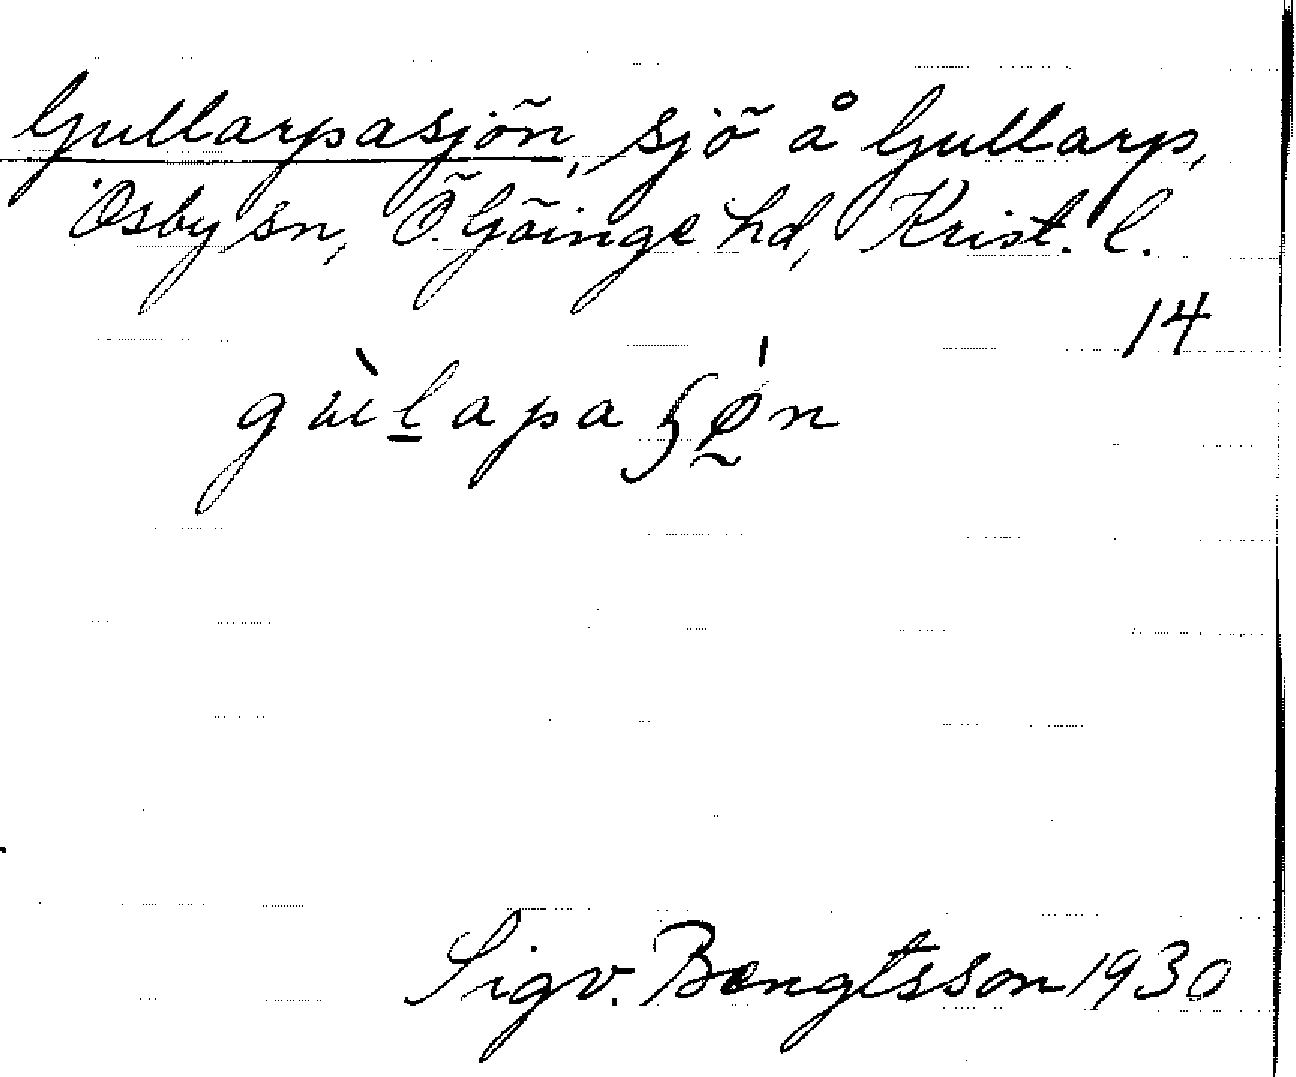 Gullarpasjön, sjö å Gullarp,
Osby sn, Ö. Göinge hd, Krist. l.
14
gùlapaʂǿn
Sigv. Bengtsson 1930